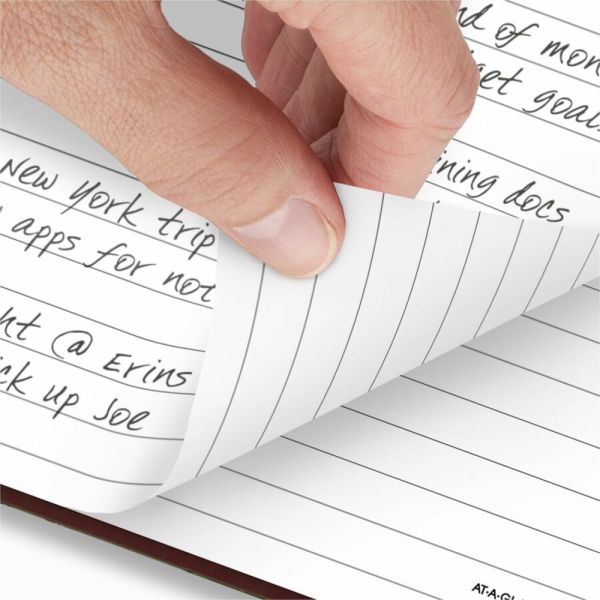 nd of mon
get goals
ining docs
New York trip
apps for not
ht @ Erins
ck up Joe
AT-A-GL